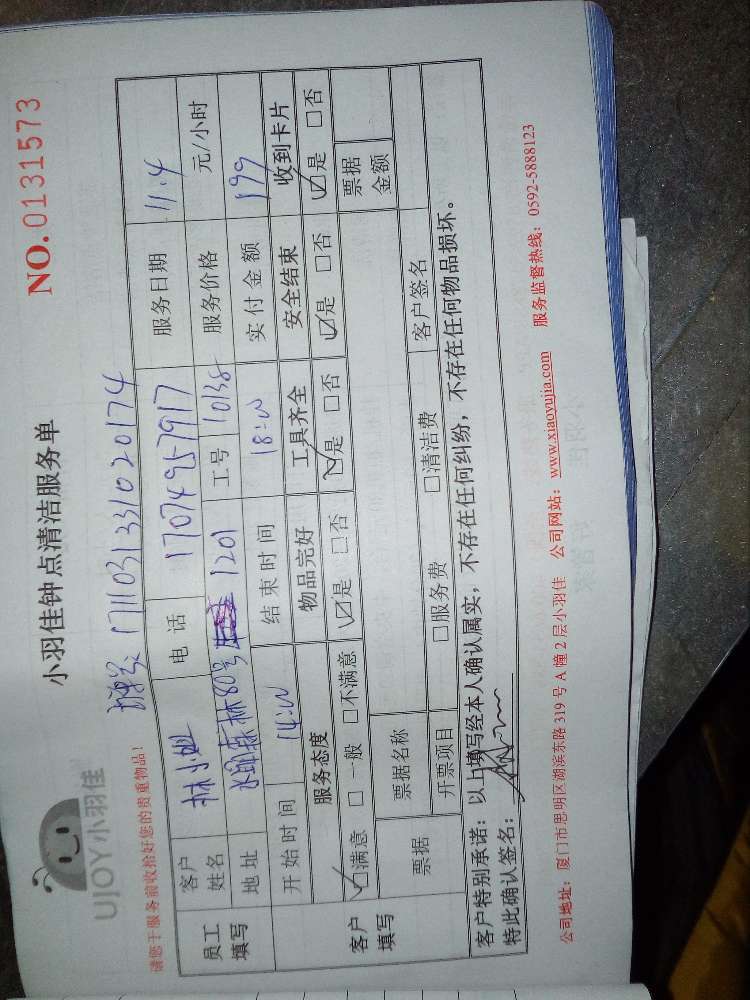 UJOY小羽佳
小羽佳钟点清洁服务单
NO.0131573
请您于服务前收拾好您的贵重物品!
1711031331020174
员工填写
客户姓名 林小姐 电话 17074957917 服务日期 11.4
地址 水印森林80号 1201 工号 10138 服务价格 元/小时
开始时间 14:00 结束时间 18:00 实付金额 199
客户填写
服务态度 物品完好 工具齐全 安全结束 收到卡片
☑满意 □一般 □不满意 ☑是 □否 ☑是 □否 ☑是 □否 ☑是 □否
票据 票据名称 票据金额
开票项目 □服务费 □清洁费 客户签名
客户特别承诺:以上填写经本人确认属实,不存在任何纠纷,不存在任何物品损坏。
特此确认签名:
公司地址:厦门市思明区湖滨东路319号A幢2层小羽佳 公司网站:www.xiaoyujia.com 服务监督热线:0592-5888123